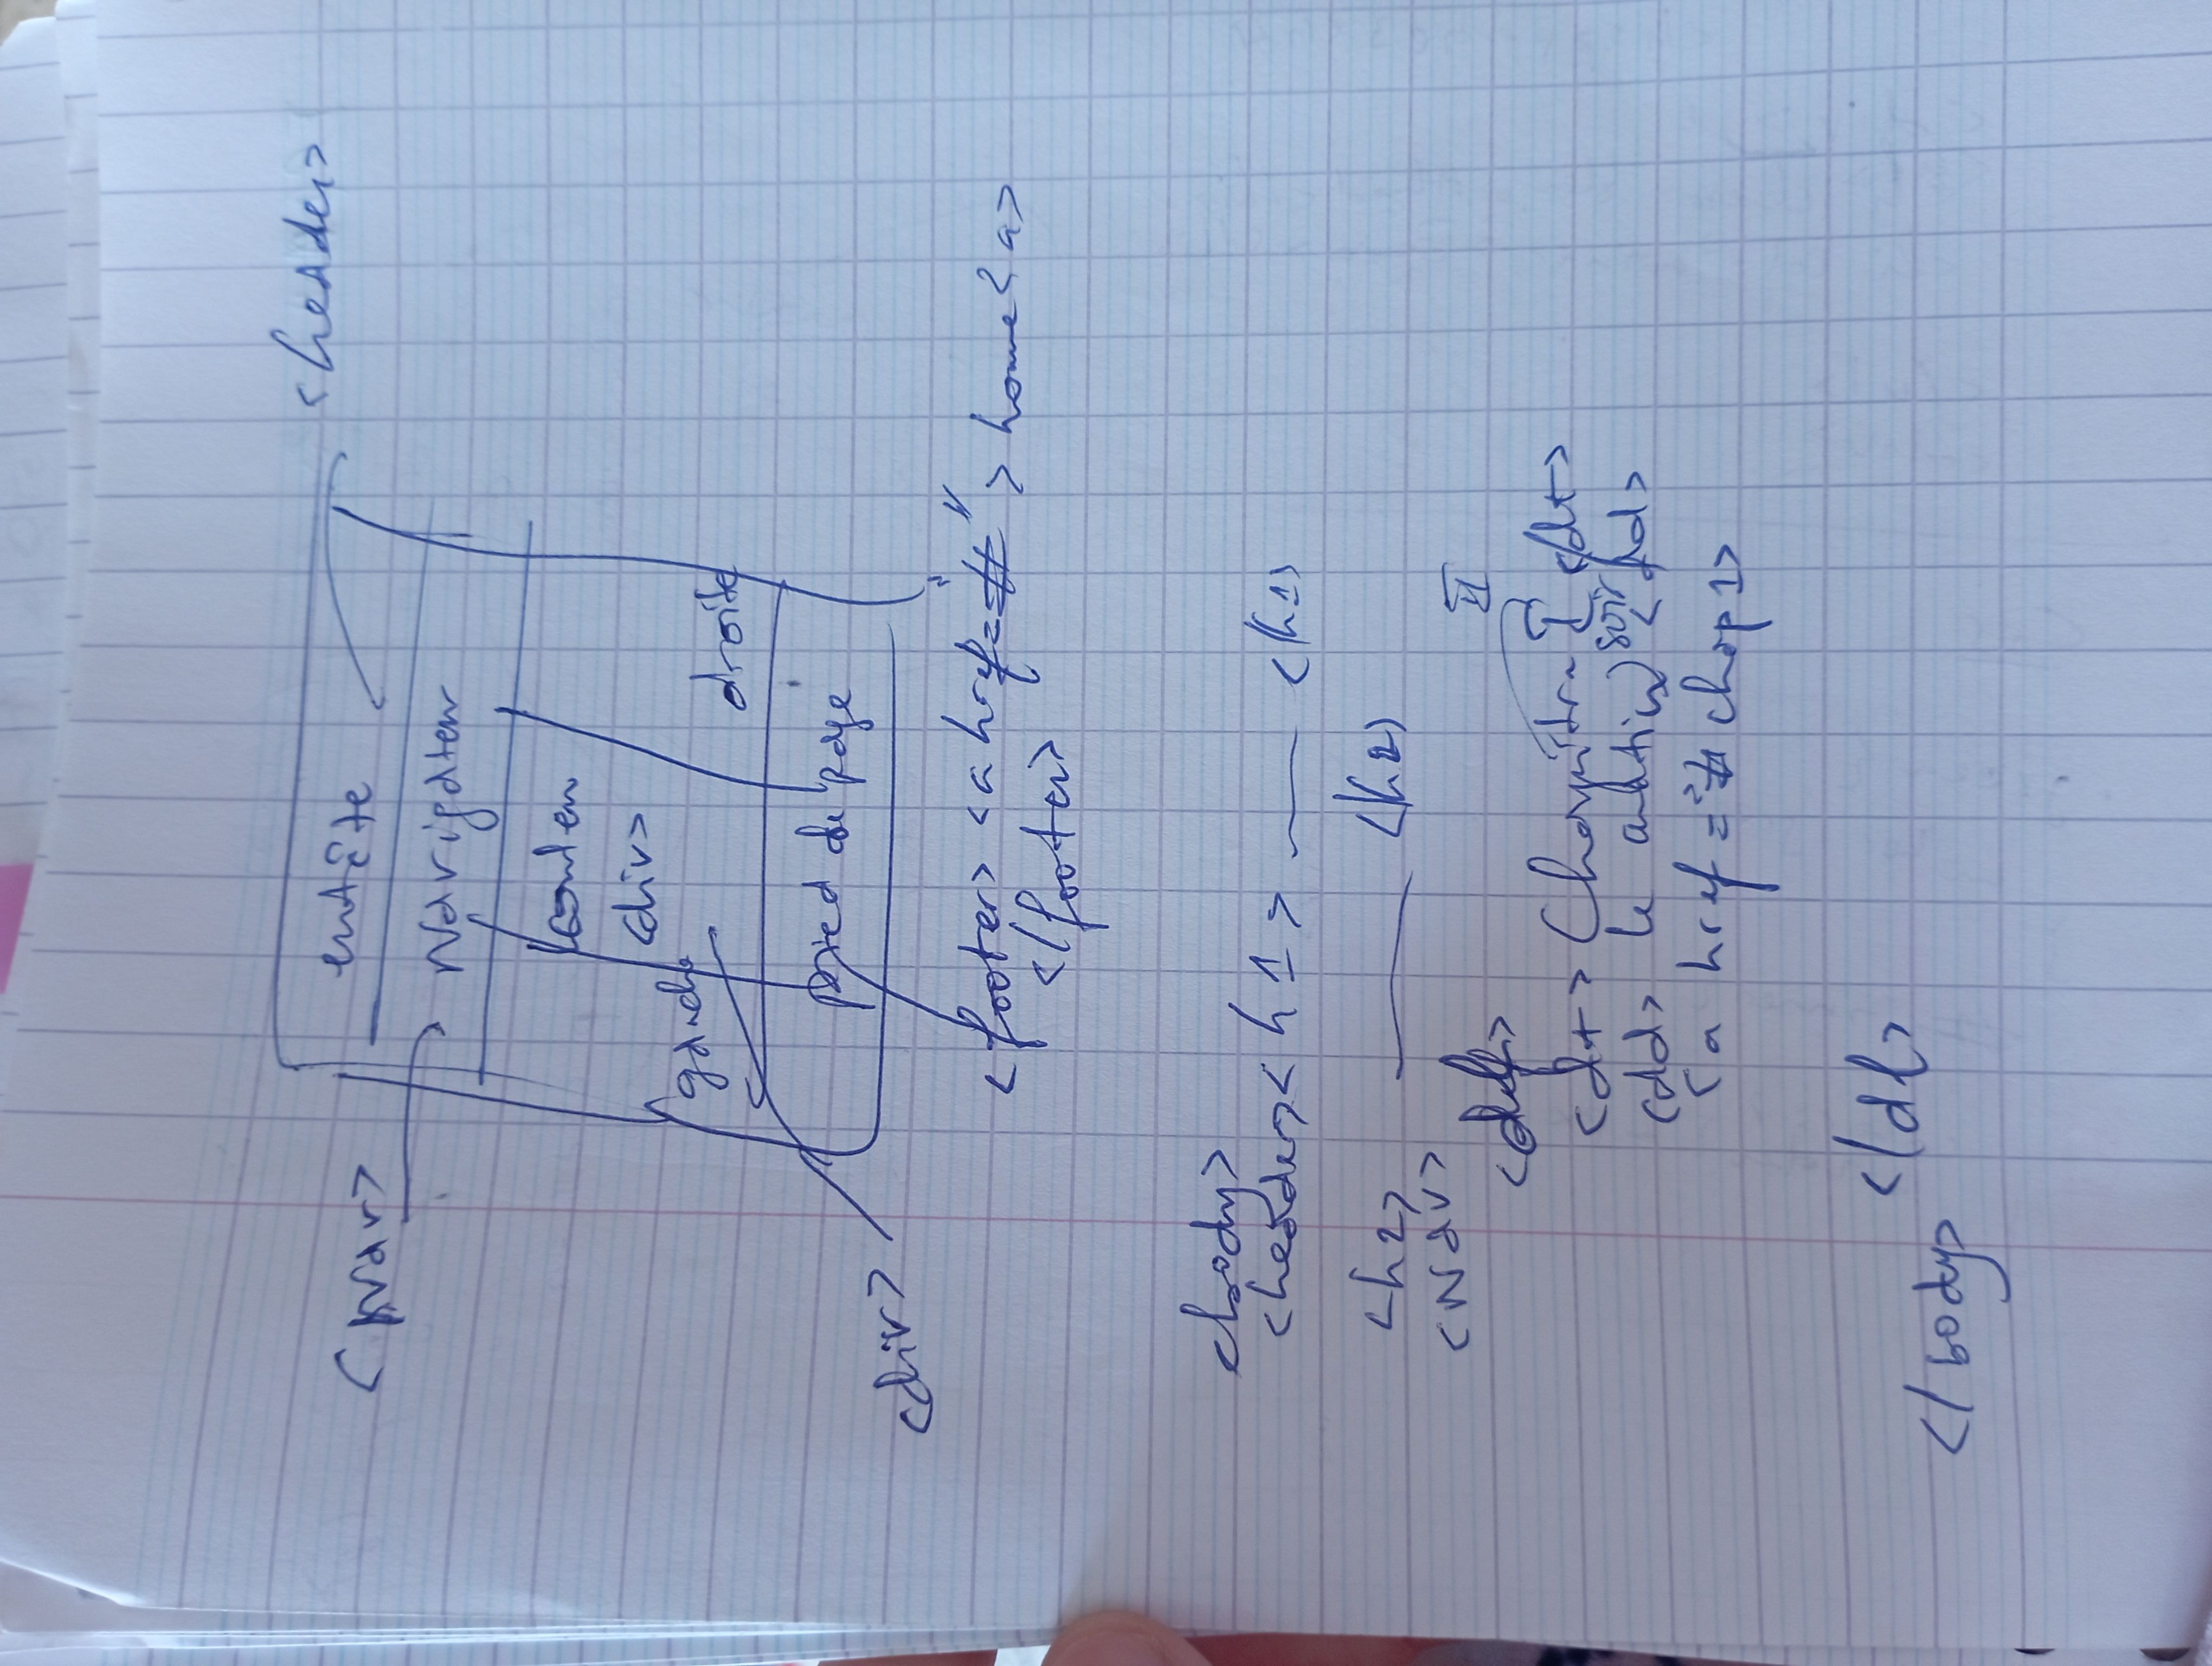 <header>
entête
<Nav>
Navigateur
conten
<div>
gauche
droite
pied de page
<div>
<footer> <a href="#"> home<a>
</footer>
<body>
<header><h1> — </h1>
<h2> — </h2>
<Nav>
II
<dt> Chapitre I </dt>
soir
<dd> le matin </dd>
<a href="#chap1>
</dl>
</body>